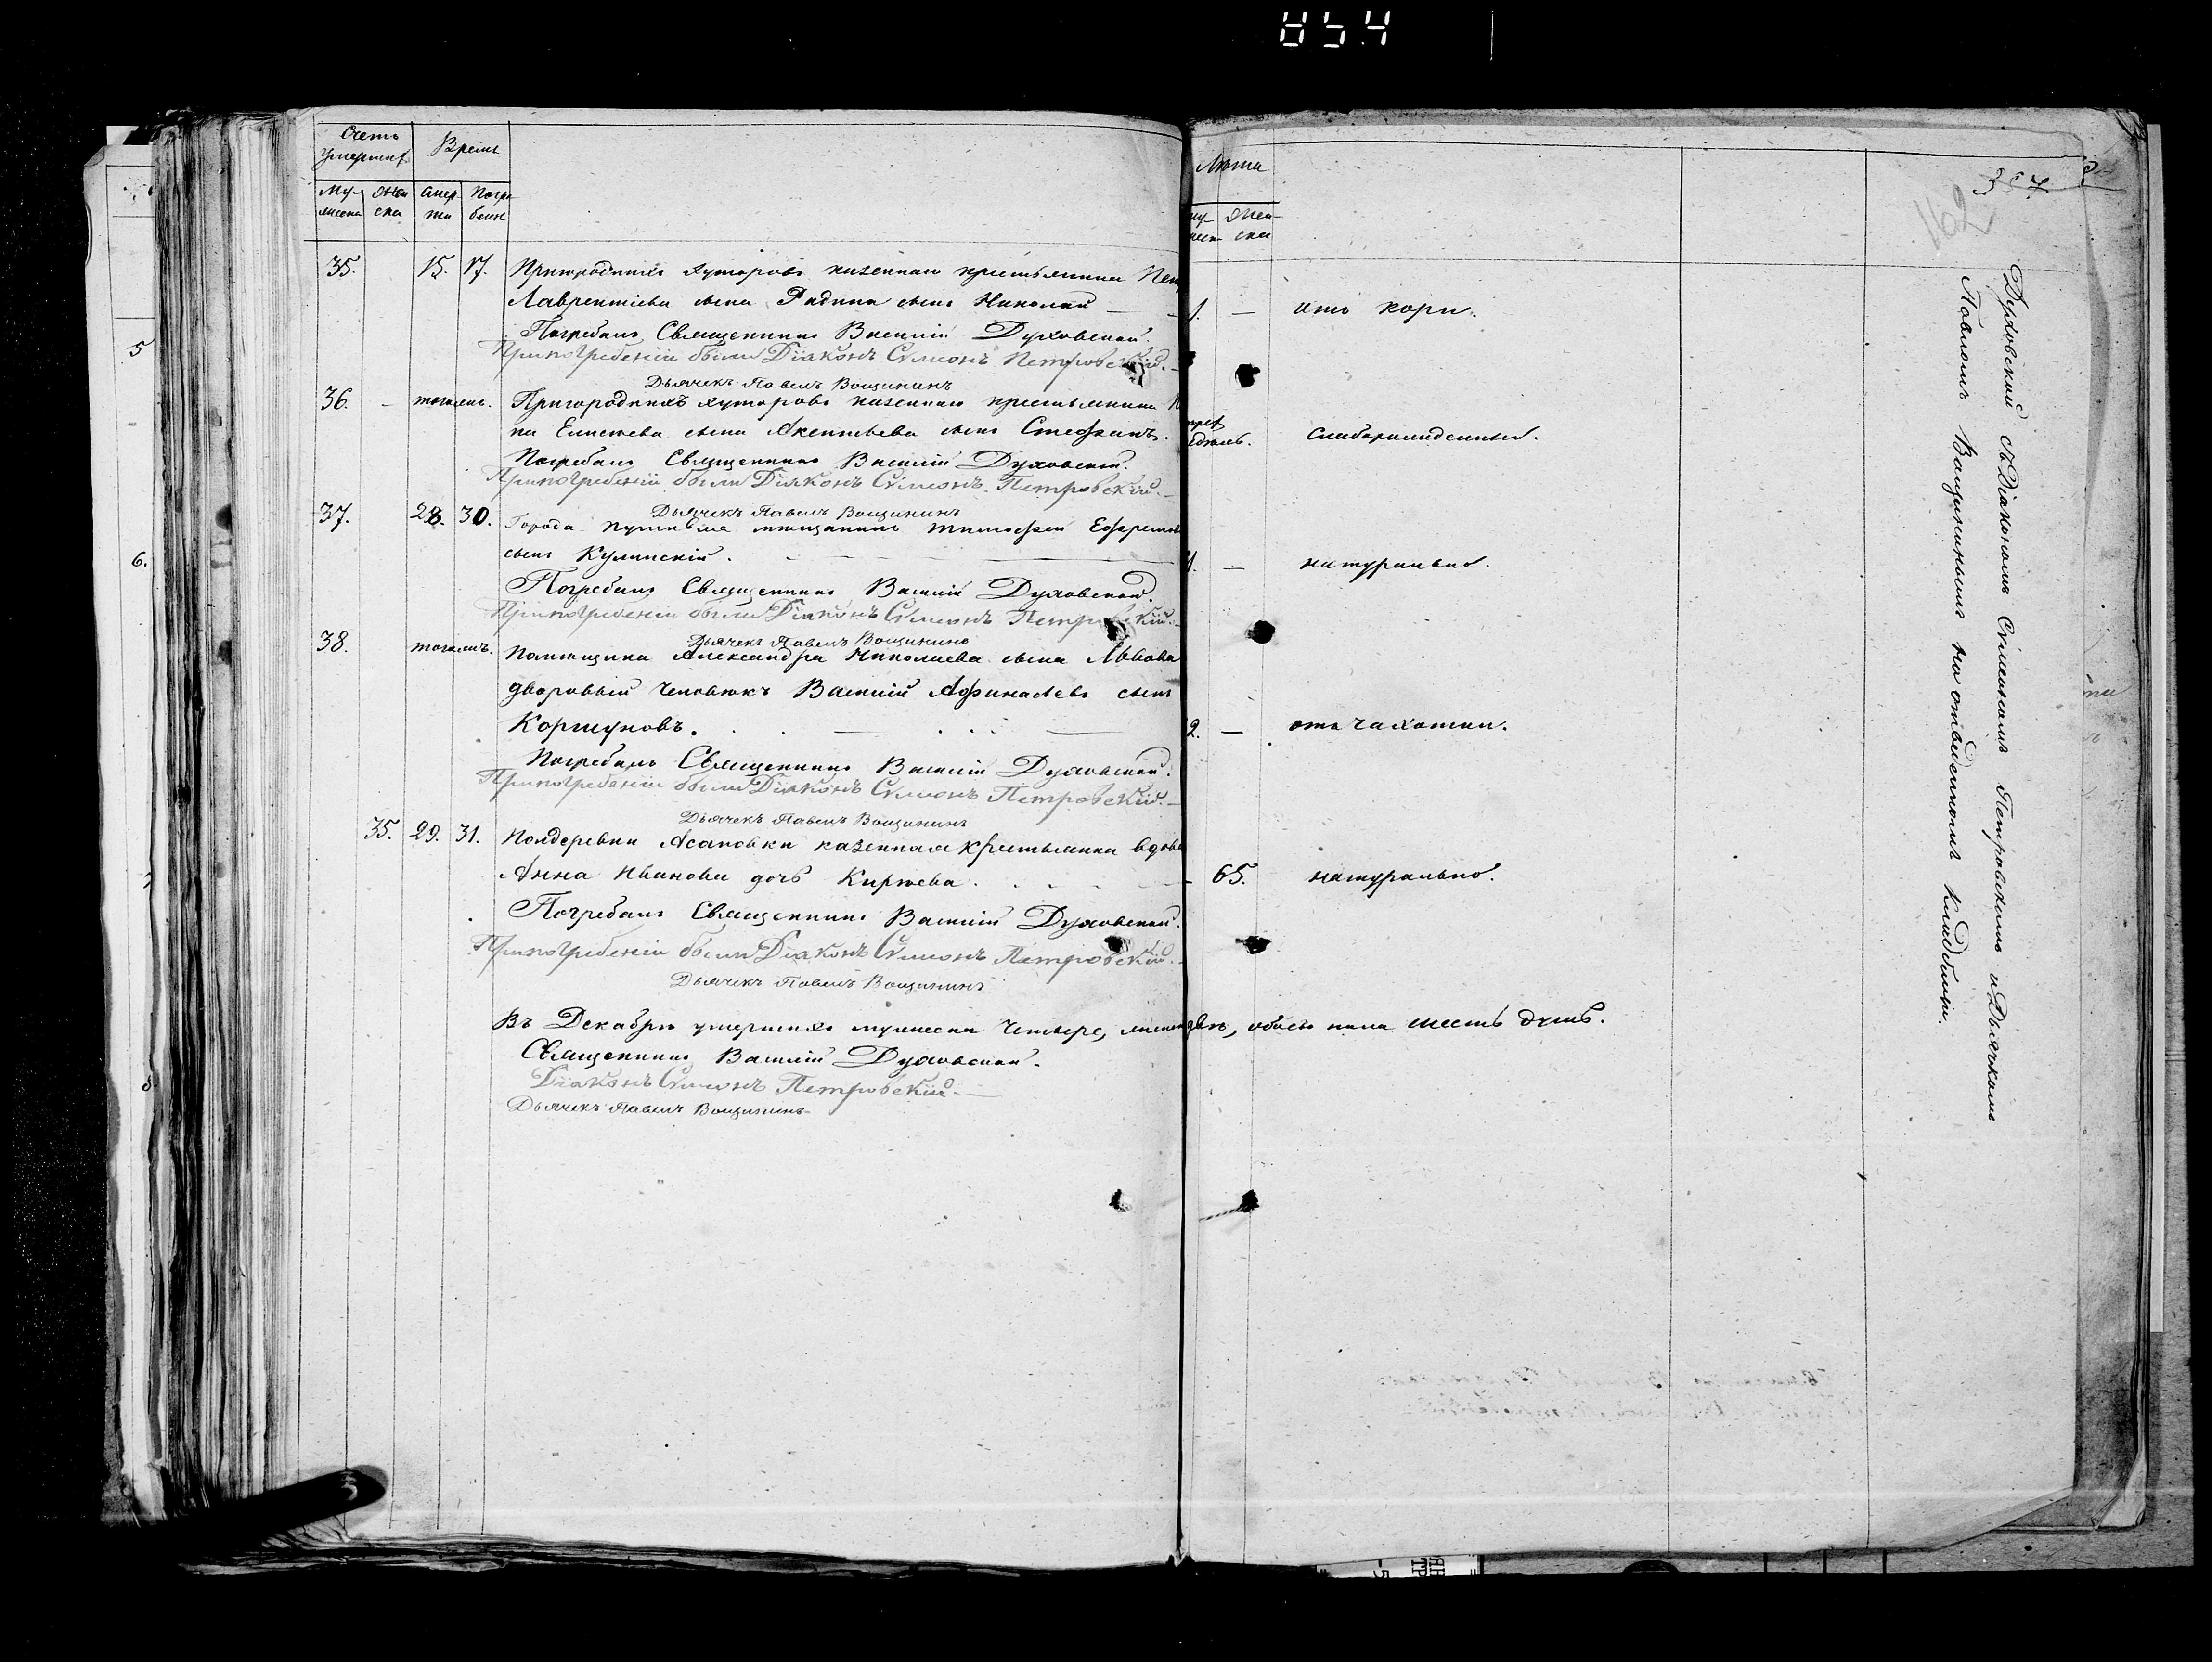 854
Счетъ умершихъ
Время
Лѣта
Мужеска
Женска
Смерти
Погребенія
Женска
357
162
35. 15. 17. Пригородныхъ хуторовъ казеннаго крестьянина
Лаврентіева сына Радина сынъ Николай
1. — отъ кори.
Погребалъ Священникъ Василій Духовской.
При погребеніи были Діяконъ Сѵмеонъ Петровскій.
Дьячекъ Павелъ Вощининъ
36. — тогожъ. Пригородныхъ хуторовъ казеннаго крестьянина
Елисеева сына Акентьева сынъ Стефанъ.
слаборожденный.
Погребалъ Священникъ Василій Духовской.
При погребеніи были Діяконъ Сѵмеонъ Петровскій.
Дьячекъ Павелъ Вощининъ
37. 28. 30. Города Путивля мѣщанинъ Тимофей Ефремовъ
сынъ Кулинскій.
— натурально.
Погребалъ Священникъ Василій Духовской.
При погребеніи были Діяконъ Сѵмеонъ Петровскій.
Дьячекъ Павелъ Вощининъ
38. тогожъ. Помѣщика Александра Николаева сына Львова
дворовый человѣкъ Василій Афанасьевъ сынъ
Коршуновъ.
2. — отъ чахотки.
Погребалъ Священникъ Василій Духовской.
При погребеніи были Діяконъ Сѵмеонъ Петровскій.
Дьячекъ Павелъ Вощининъ
35. 29. 31. Полдеревни Асановки казенная крестьянка вдова
Анна Иванова дочь Киржева.
65. натурально.
Погребалъ Священникъ Василій Духовской.
При погребеніи были Діяконъ Сѵмеонъ Петровскій.
Дьячекъ Павелъ Вощининъ
Въ Декабрѣ умершихъ мужеска четыре, женска двѣ, обоего пола шесть душъ.
Священникъ Василій Духовской.
Діяконъ Сѵмеонъ Петровскій.
Дьячекъ Павелъ Вощининъ
Духовской съ Діякономъ Сѵмеономъ Петровскимъ и Дьячкомъ
Павломъ Вощининымъ на отведенномъ кладбищѣ.